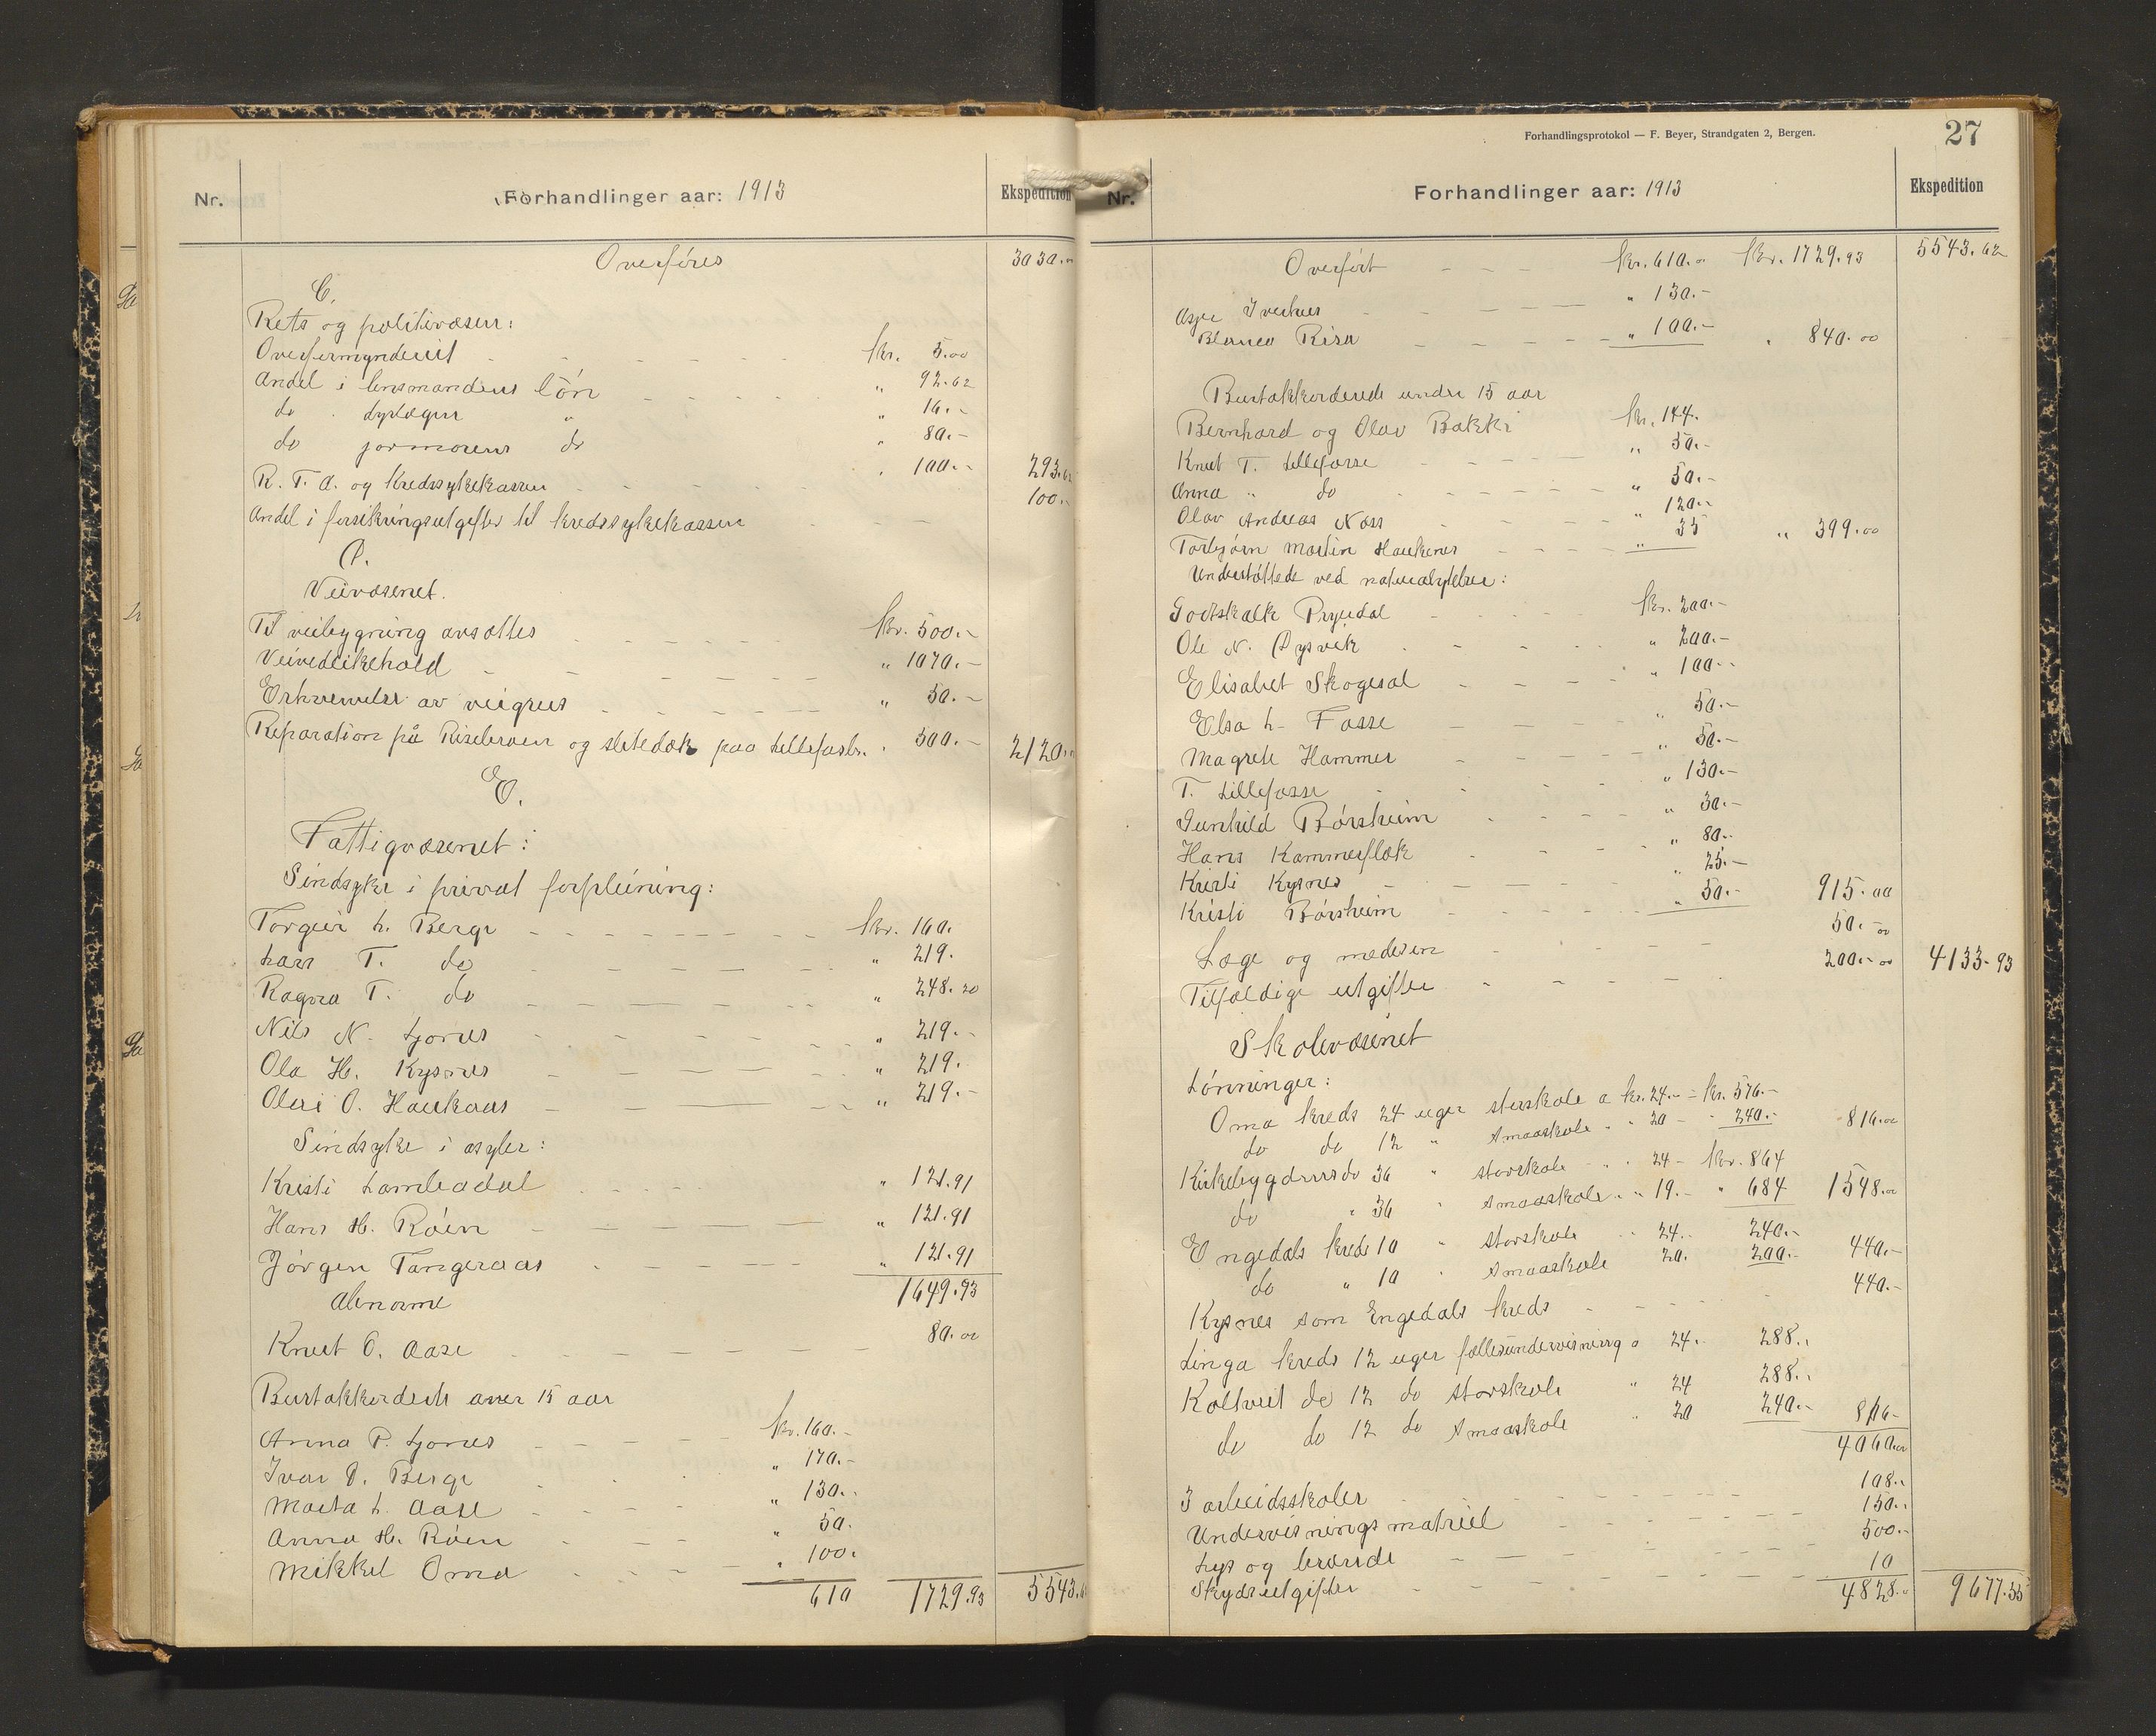 Nr. Forhandlinger aar: 1913 Ekspedition
Overføres 3030.-
C.
Rets og politivæsen:
Overformynderiet kr. 5.00
Andel i lensmandens løn " 92.62
do " " 16.-
do jormorens do " 80.-
R. T. A. og Kredssykekassen " 100.- 293.62
Andel i forsikringsutgifter til kredssykekassen 100.-
D.
Veivæsenet.
Til veibygning avsættes kr. 500.-
Veivedlikehold " 1070.-
Erhvervelse av veigrus " 50.-
Reparation på Risebroen og slitedæk paa Lillefosbr. " 500.- 2120.-
E.
Fattigvæsenet:
Sindsyke i privat forpleining:
Torgeir L. Berge kr. 160.
Lars T. do " 219.
Ragna T. do " 248.20
Nils N. Tjones " 219.-
Ola H. Kysnes " 219.
Olai O. Haukaas " 219.-
Sindsyke i asyler:
Kristi Lambadal " 121.91
Hans H. Røen " 121.91
Jørgen Tangeraas " 121.91
1649.93
Abnorme
Knut O. Aase 80.00
Bortakkorderte over 15 aar
Anna P. Tjones kr. 160.-
Ivar O. Berge " 170.-
Marta L. Aase " 130.-
Anna H. Røen " 50.
Mikkel Oma " 100.
610 1729.93 5543.62
Forhandlingsprotokol — F. Beyer, Strandgaten 2, Bergen. 27
Nr. Forhandlinger aar: 1913 Ekspedition
Overført kr. 610.- kr. 1729.93 5543.62
" 130.-
Risa " 100.- " 840.00
Bortakkorderede under 15 aar
Bernhard og Olav Bakke kr. 144.
Knut T. Lillefosse " 50.-
Anna " do " 50.-
Olav Andreas Næss " 120.-
Torbjørn Martin Haukenes " 35 " 399.00
Understøttede ved naturalytelser:
Godtskalk kr. 200.-
Ole N. Dysvik " 200.-
Elisabet Skogesal " 100.-
Elsa L. Fosse " 50.-
Magrete Hammer " 50.-
T. Lillefosse " 130.-
Gunhild Børsheim " 30.-
Hans Kammerflok " 80.-
Kristi Kysnes " 25.-
Kristi Børsheim " 50.- 915.00
Læge og medesin 50.00
Tilfældige utgifter 200.00 4133.93
Skolevæsenet
Lønninger:
Oma kreds 24 uger storskole a kr. 24.- = kr. 576.-
do do 12 " smaaskole " " 20 - " 240.- 816.00
Kirkebygdens do 36 " storskole " " 24 - kr. 864
do " 36 " smaaskole " " 19.- " 684 1548.00
Engedals kreds 10 " storskole " 24.- 240.-
do " 10 " smaaskole 20. 200.- 440.-
Kysnes som Engedals kreds 440.-
Linga kreds 12 uger fællesundervisning a 24.- 288.-
Koltveit do 12 do storskole " 24 288.-
do do 12 do smaaskole " 20 240.- 816-
4060.00
3 arbeidsskoler 108.-
Undervisningsmatriel 150.-
Lys og brænde 500.-
Skydsutgifter 10
4828.- 9677.55